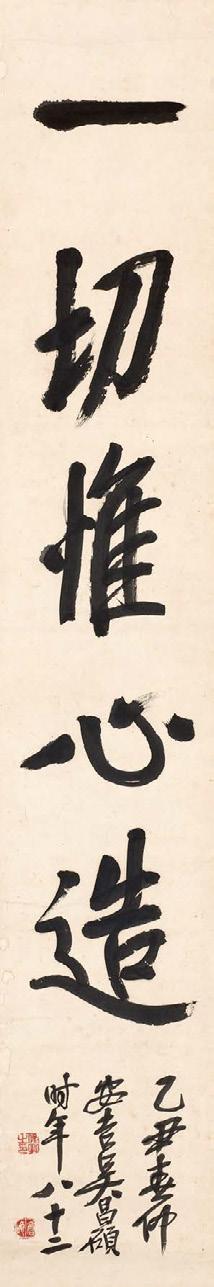 一切惟心造
乙丑春仲
安吉吴昌硕
时年八十二